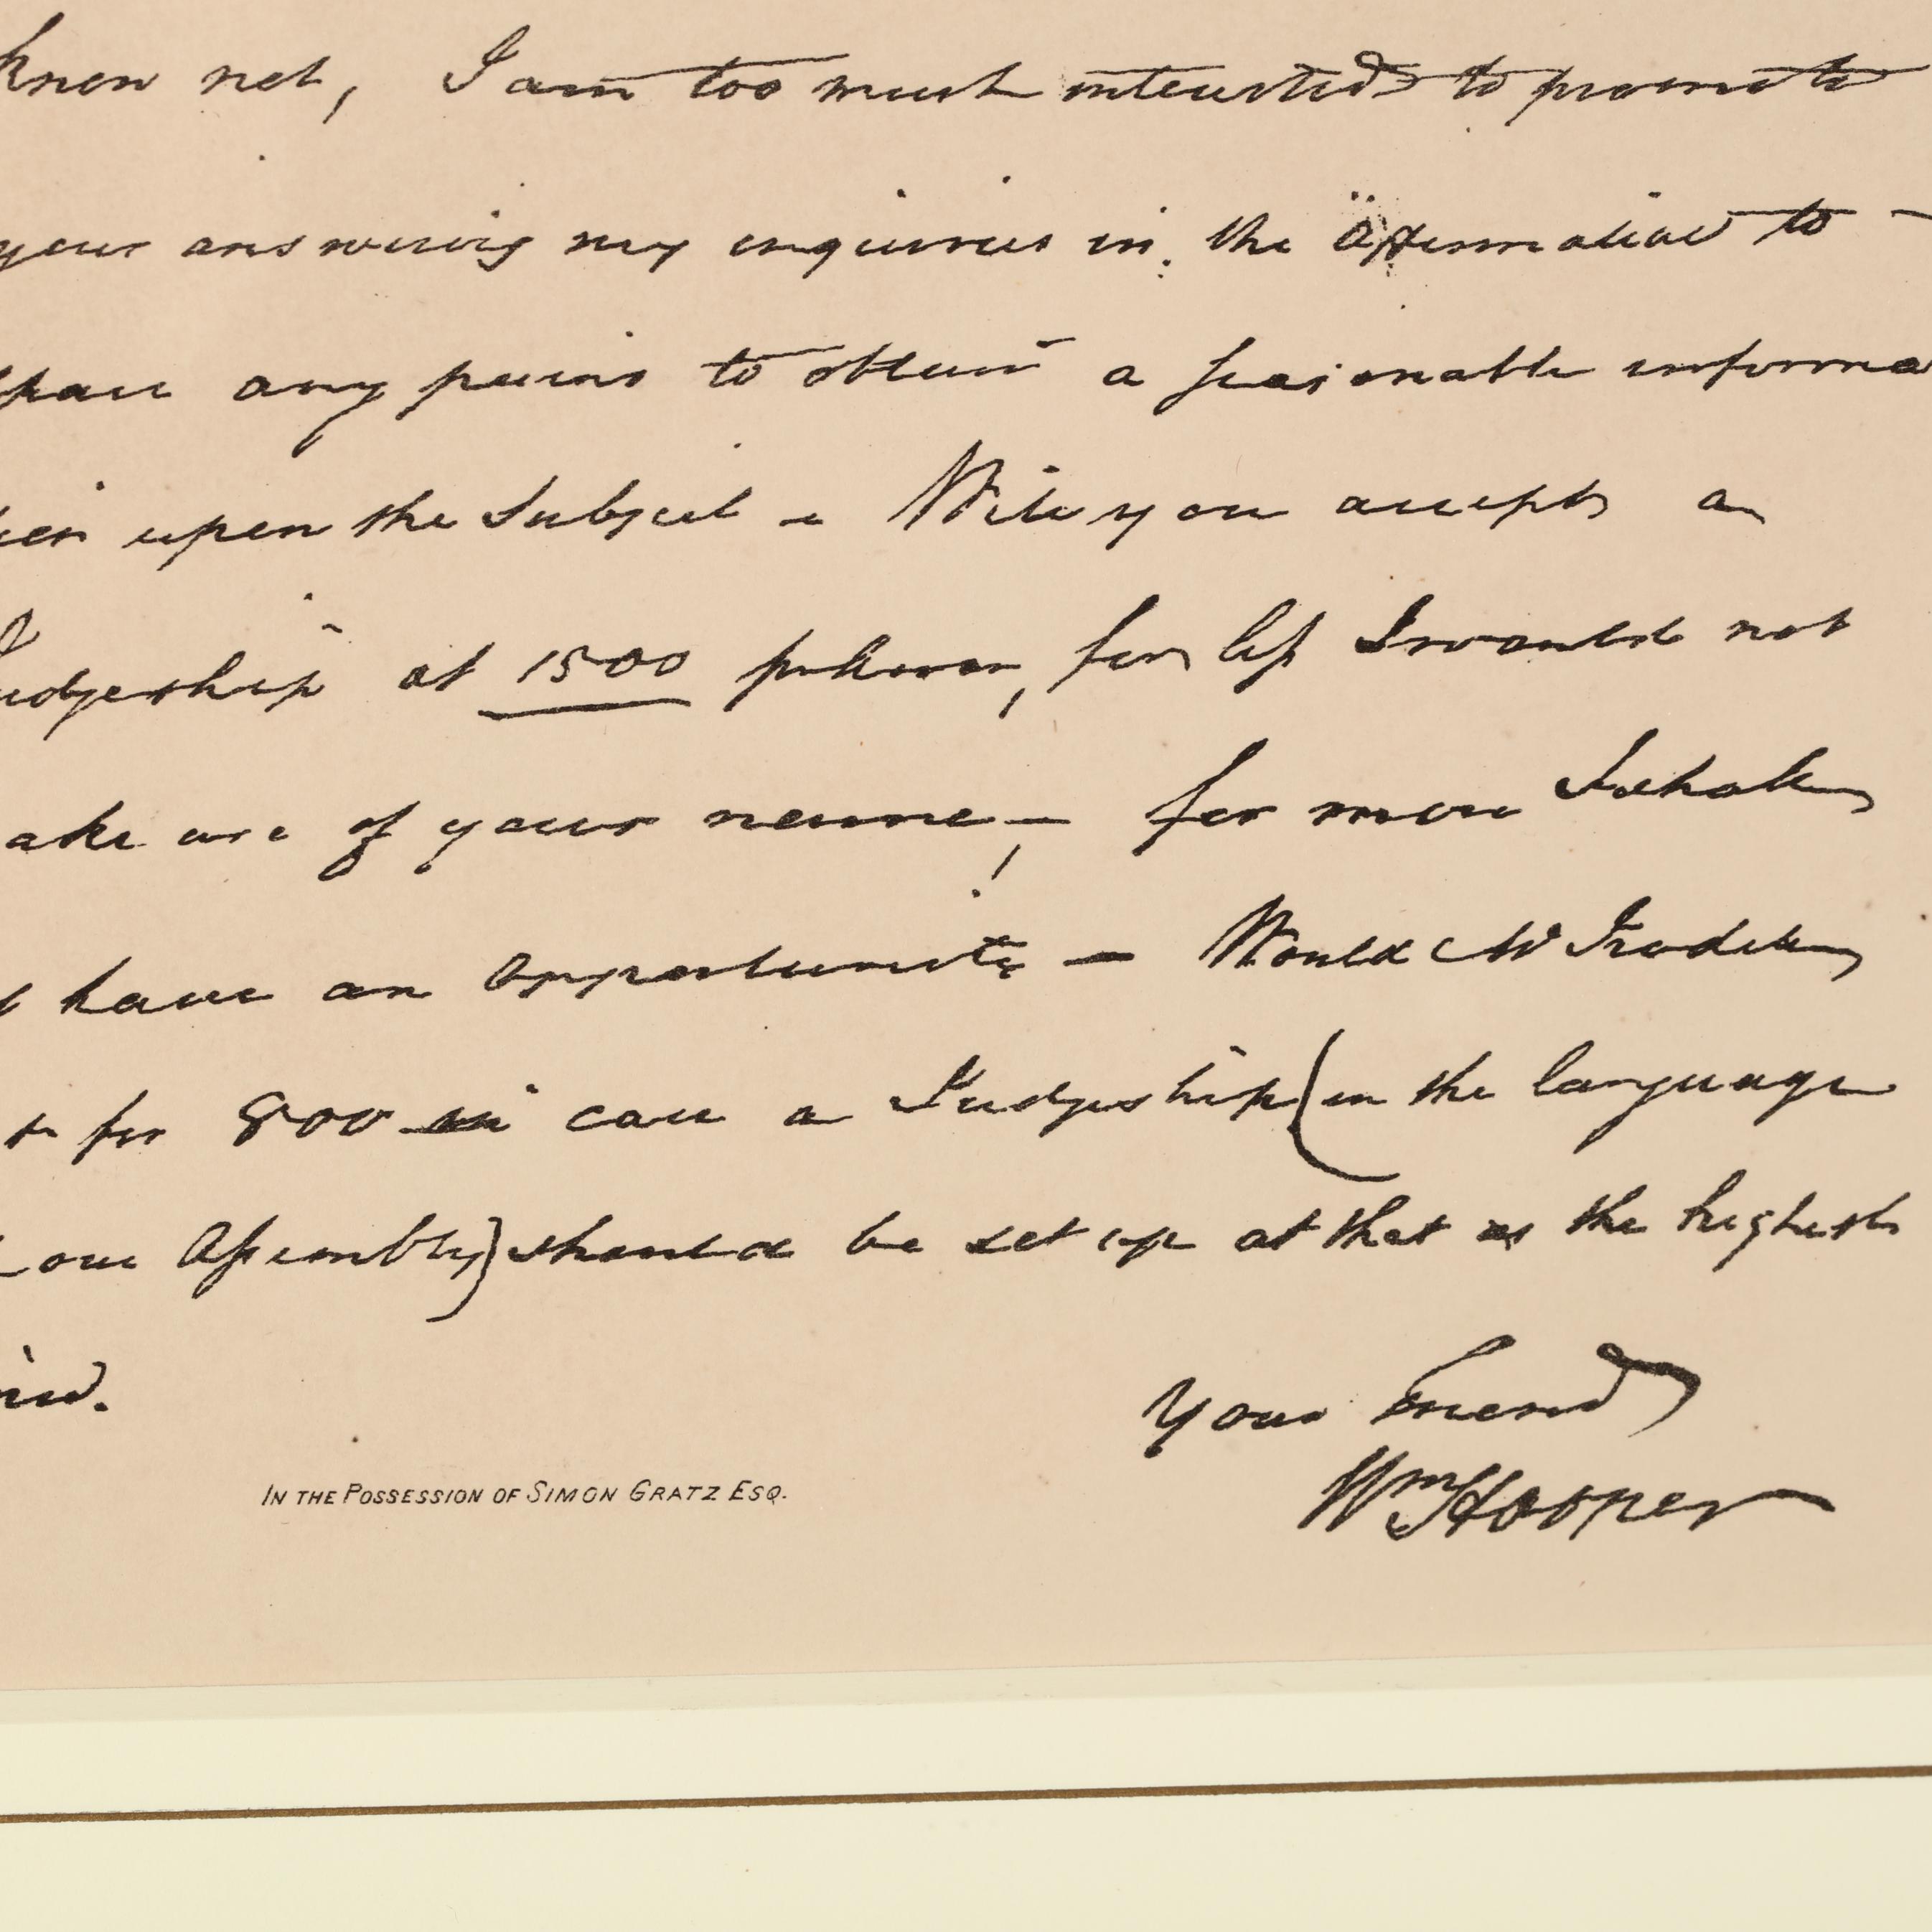 know not, I am too much interested to promote
your answering my inquiries in the affirmative to
spare any pains to obtain a seasonable informa
tion upon the Subject - Will you accept a
Judgeship at 1500 for less I would not
ake use of your name - for more I shall
have an Opportunity - Would Mr Iredell
for 800 in case a Judgeship (in the language
our Assembly) should be set up at that as the highest
Your Friend
Wm Hooper
IN THE POSSESSION OF SIMON GRATZ ESQ.